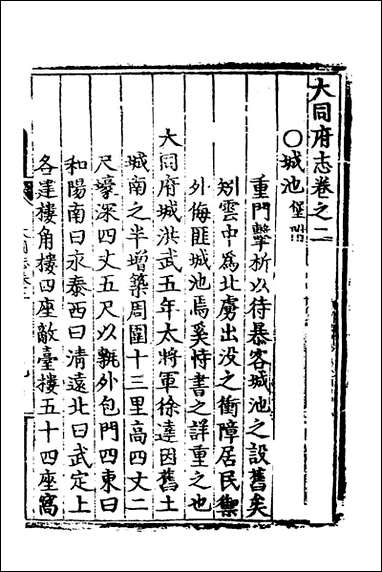 大同府志卷之二
○城池 堡附
重門擊柝以待暴客城池之設舊矣
矧雲中為北虜出没之衝障居民禦
外侮匪城池焉奚恃書之詳重之也
大同府城洪武五年太將軍徐達因舊土
城南之半增築周圍十三里高四丈二
尺壕深四丈五尺以甎外包門四東曰
和陽南曰永泰西曰清遠北曰武定上
各建樓角樓四座敵臺樓五十四座窩